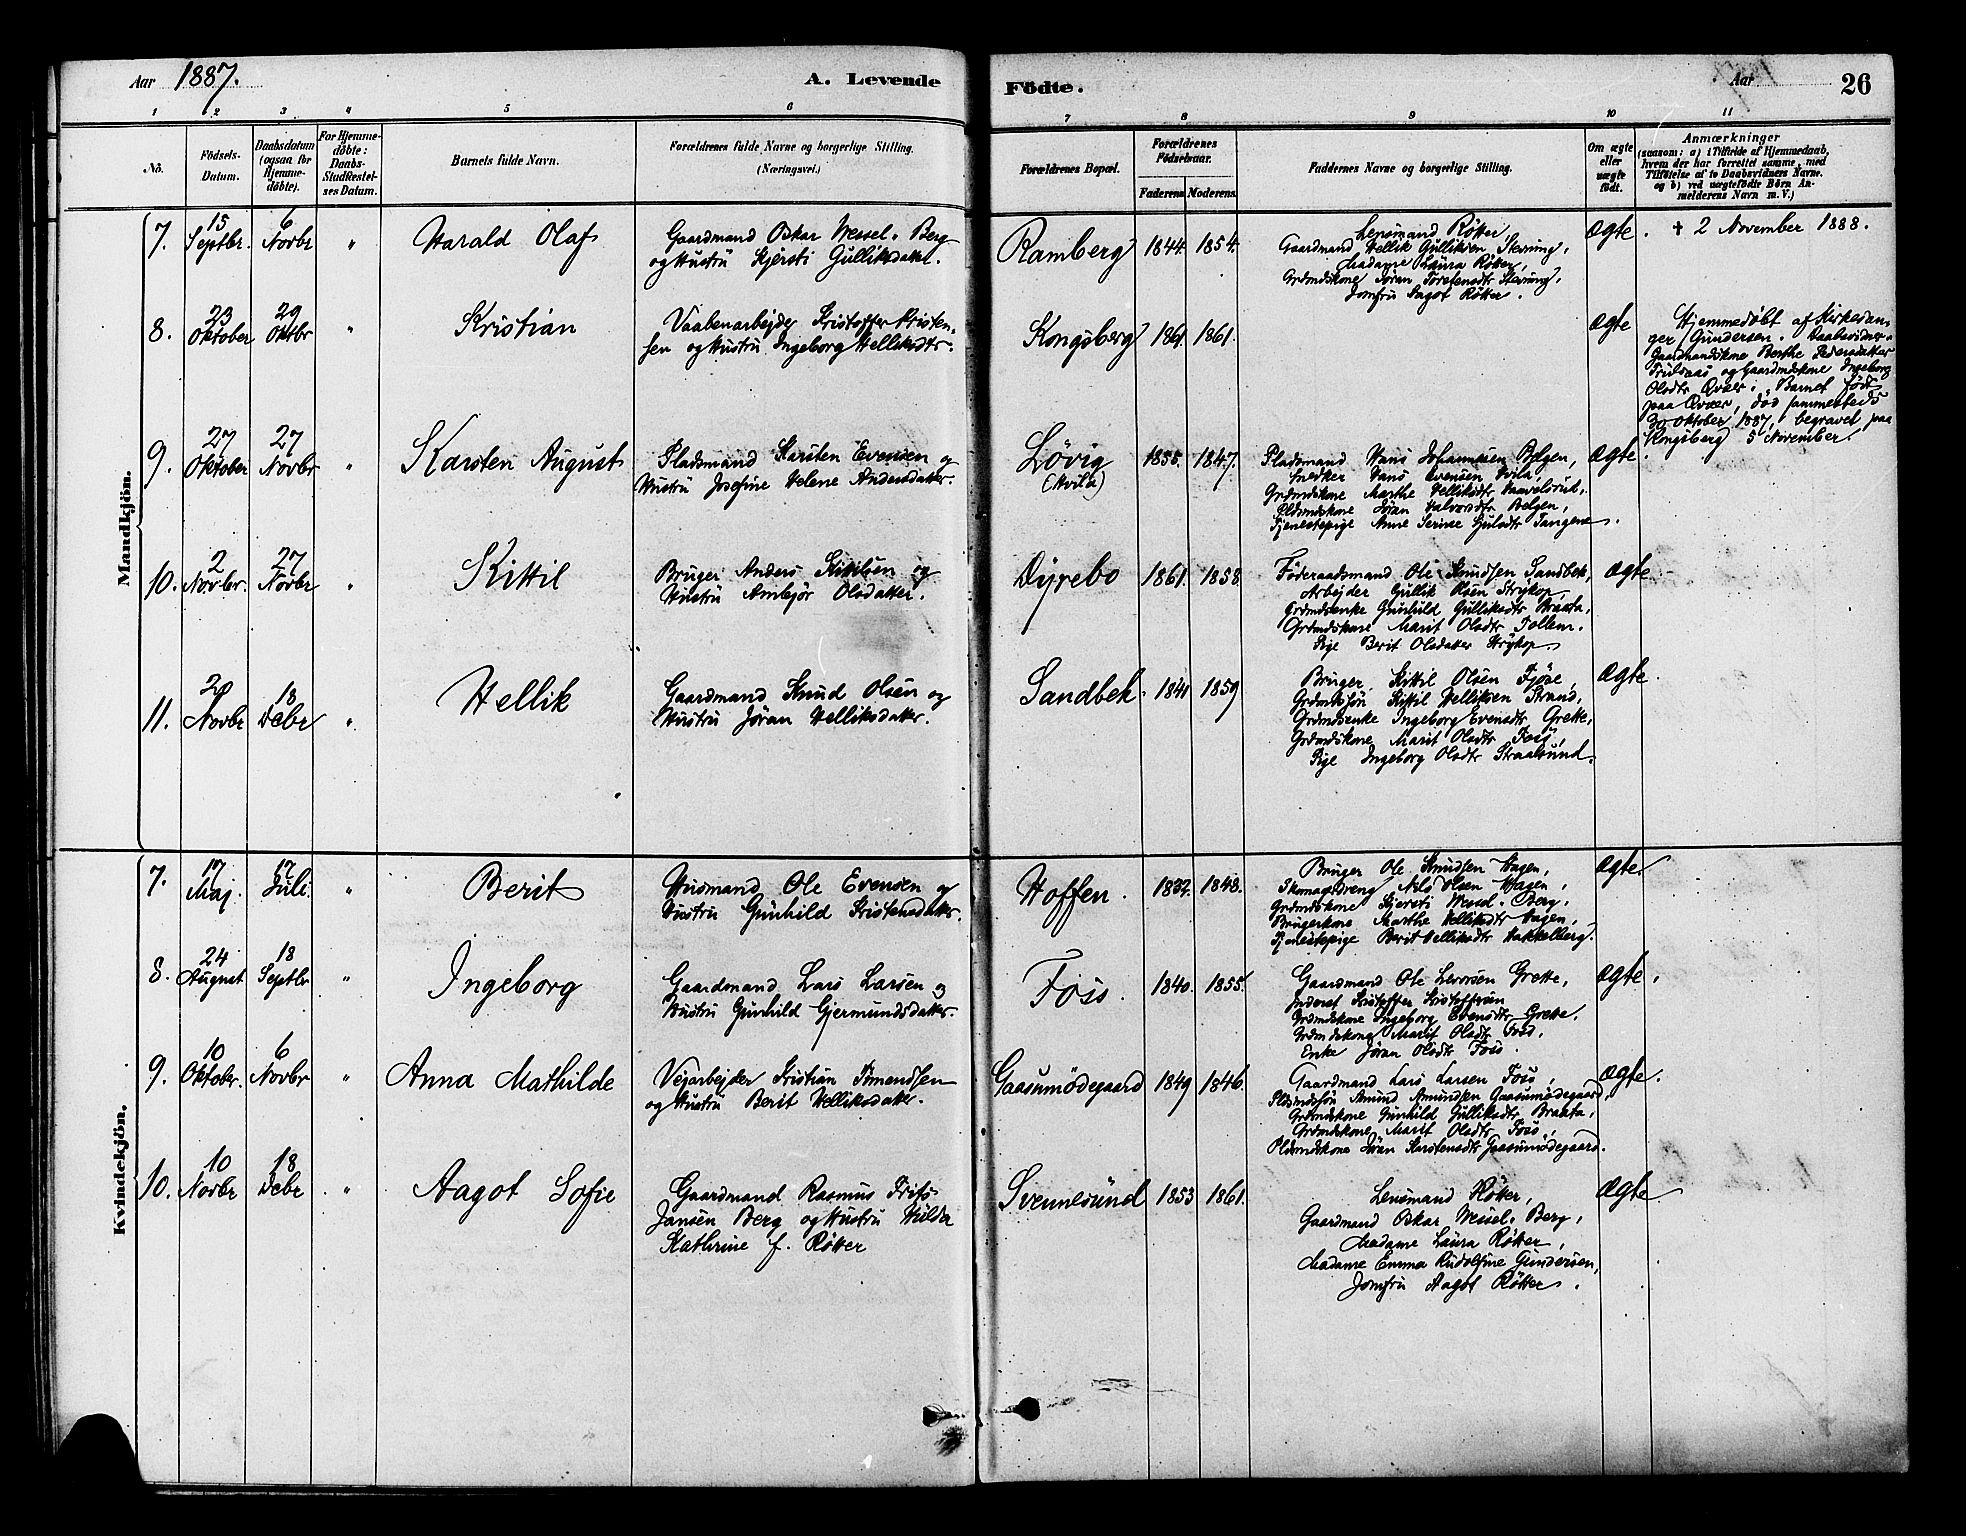 Aar 1887.
A. Levende
Födte.
Aar
26
1 2 3 " 5 6
7 8 9 10 11
Nô.
Födsels-Datum.
Daabsdatum (ogsaa for Hjemmedøbte).
For Hjemmedøbte: Daabs-Stadfæstelses Datum.
Barnets fulde Navn.
Forældrenes fulde Navne og borgerlige Stilling.
(Næringsvei.)
Forældrenes Bopæl.
Forældrenes Födselsaar.
Faderens Moderens
Faddernes Navne og borgerlige Stilling.
Om ægte eller uægte födt.
Anmærkninger
(saasom: a) i Tilfælde af Hjemmedaab,
hvem der har forrettet samme, med
Tilföielse af to Daabsvidners Navne.
og b) ved uægtefödte Börn An-
melderens Navn m.V.)
Mandkjön.
7.
15 Septbr.
6 Novbr
"
Harald Olaf
Gaardmand Oskar Wessel-Berg
og Hustru Kjersti Gulliksdatter.
Ramberg
1844. 1854.
Lensmand Røtter
Gaardmand Hellik Gulliksen Stevning,
Madame Laura Røtter,
Grdmdskone Jøran Torstensdtr Stevning,
Jomfru Aagot Røtter.
Ægte.
† 2 November 1888.
8.
23 Oktober
29 Oktbr
"
Kristian
Vaabenarbejder Kristoffer Kristen-
sen og Hustru Ingeborg Helliksdtr.
Kongsberg
1861. 1861.
Ægte
Hjemmedøbt af Kirkesan-
ger Gundersen. Daabsvidner
Gaardmandskone Berthe Pedersdatter
Trulsaas og Gaardmdskone Ingeborg
Olsdtr Qvær. Barnet født
paa Qvær, død sammesteds
30 Oktober 1887, begravet paa
Kongsberg 5 November.
9.
27 Oktober
27 Novbr
"
Karsten August
Pladsmand Karsten Evensen og
Hustru Josefine Helene Andersdatter.
Løvig
(Hvila)
1855. 1847.
Pladsmand Hans Johannesen Belgen,
Snedker Hans Evensen Hvila,
Grdmdskone Marthe Helliksdtr Haavelsrud,
Pldsmdskone Jøran Halvorsdtr Belgen,
Tjenestepige Anne Serine Tangene.
Ægte.
10.
2 Novbr.
27 Novbr
"
Kittil
Bruger Anders Kittilsen og
Hustru Ambjør Olsdatter.
Dyrebo
1861. 1858.
Føderaadsmand Ole Knudsen Sandbek,
Arbejder Gullik Olsen Strykop
Grdmdsenke Gunhild Gulliksdtr Braata,
Grdmdskone Marit Olsdtr Tollem.
Pige Berit Olsdatter Strykop
Ægte
11.
Novbr
18 Debr
"
Hellik
Gaardmand Knud Olsen og
Hustru Jøran Helliksdatter.
Sandbek.
1841 1859
Bruger Kittil Olsen Fjøse,
Grdmdssøn Kittil Helliksen Strand,
Grdmdsenke Ingeborg Evensdtr Grette,
Grdmdskone Marit Olsdtr Foss,
Pige Ingeborg Olsdtr Straalsund.
Ægte.
Kvindekjön.
7.
17 Maj.
17 Juli.
"
Berit
Husmand Ole Evensen og
Hustru Gunhild Kristensdatter.
Hoffen.
1832. 1848.
Bruger Ole Knudsen Hagen,
Skomagerdreng Nils Olsen Hagen,
Grdmdskone Kjersti Wessel-Berg,
Brugerkone Marthe Helliksdtr Hagen,
Tjenestepige Berit Helliksdtr Hakkelberg.
Ægte.
8.
24 August
18 Septbr
"
Ingeborg
Gaardmand Lars Larsen og
Hustru Gunhild Gjermundsdatter.
Foss.
1840. 1855.
Gaardmand Ole Levorsen Grette,
Inderst Kristoffer Kristoffersen
Grdmdskone Ingeborg Evensdtr Grette.
Grdmdskone Marit Olsdtr Foss,
Enke Jøran Olsdtr Foss.
Ægte.
9.
10 Oktober.
6 Novbr
"
Anna Mathilde
Vejarbejder Kristian Simensen
og Hustru Berit Helliksdatter.
Gaasumødegaard
1849 1846.
Gaardmand Lars Larsen Foss,
Pldsmdssøn Amund Amundsen Gaasumødegaard,
Grdmdskone Gunhild Gulliksdtr Braata,
Grdmdskone Marit Olsdtr Foss,
Pldsmdskone Jøran Karstensdtr Gaasumødegaard.
Ægte.
10.
10 Novbr
18 Debr
"
Aagot Sofie
Gaardmand Rasmus Frits
Jansen Berg og Hustru Hilda
Kathrine f. Røtter
Svennesund
1853 1861.
Lensmand Røtter,
Gaardmand Oskar Wessel-Berg,
Madame Laura Røtter,
Madame Emma Rudolfine Gundersen,
Jomfru Aagot Røtter.
Ægte.